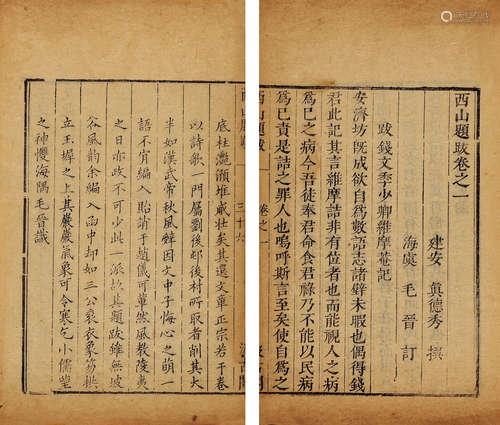 西山題跋卷之一
建安 真德秀 撰
海虞 毛晉 訂
跋錢文季少卿維摩菴記
安濟坊既成欲自為數語志諸壁未暇也偶得錢
君此記其言維摩詰非有位者也而能視人之病
為已之病今吾徒奉君命食君祿乃不能以民病
為已責是詰之罪人也嗚呼斯言至矣使自為之
西山題跋 卷之一
西山題跋 三十六 汲古閣
底柱灩澦堆咸壯矣其選文章正宗若干卷
以詩歌一門屬劉後邨後村所取者削其大
半如漢武帝秋風辭因文中子悔心之萌一
語不肯編入貽誚于趙儀可蕫然風教陵夷
之日亦政不可少此一派欤其題跋雖無坡
谷風韵余編入函中却如三公衮衣象笏拱
立玉墀之上其巖巖氣象可令寒乞小儒望
之神慴海隅毛晉識